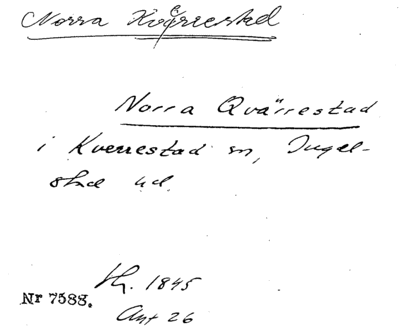 Norra Kverrestad
Norra Qvärrestad
i Kverrestad sn, Ingel-
stad hd.
Th. 1845
Nr 7588.
Ant 26